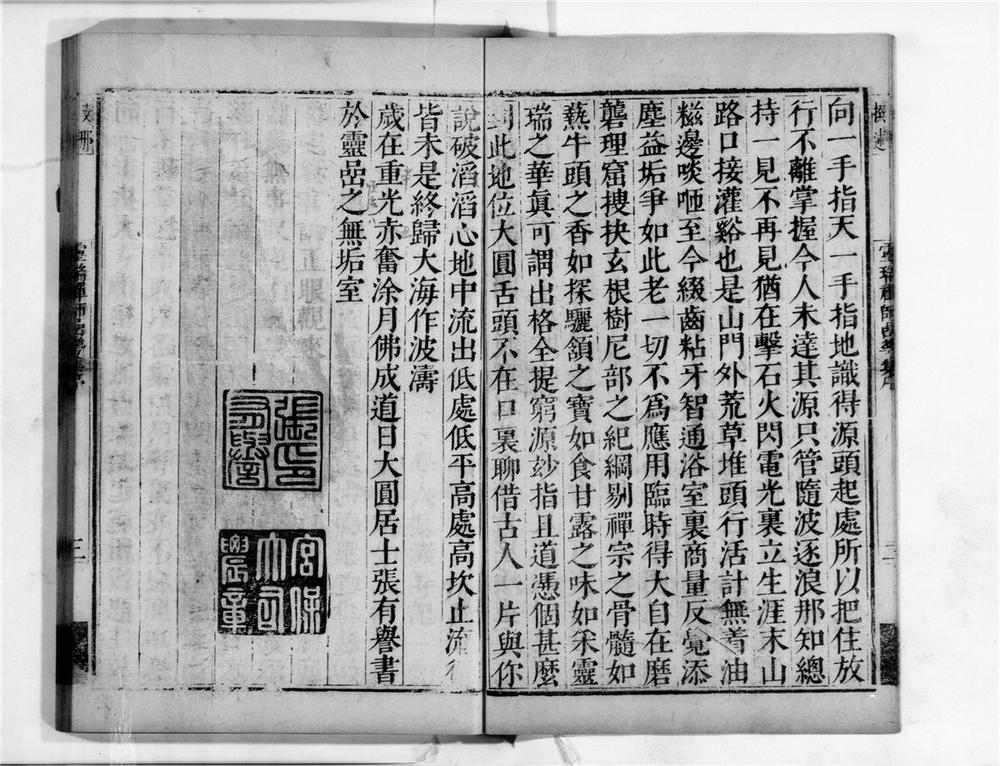 向一手指天一手指地識得源頭起處所以把住放
行不離掌握今人未達其源只管隨波逐浪那知總
持一見不再見猶在擊石火閃電光裏立生涯末山
路口接灌谿也是山門外荒草堆頭行活計無着油
糍邊啖咂至今綴齒粘牙智通浴室裏商量反覺添
塵益垢爭如此老一切不爲應用臨時得大自在磨
礱理窟摟抉玄根樹尼部之紀綱剔禪宗之骨髓如
爇牛頭之香如探驪頷之寶如食甘露之味如采靈
瑞之華眞可謂出格全提窮源玅指且道憑個甚麼
到此地位大圓舌頭不在口裏聊借古人一片與你
說破滔滔心地中流出低處低平高處高坎止流行
皆未是終歸大海作波濤
歲在重光赤奮涂月佛成道日大圓居士張有譽書
於靈嵒之無垢室
張印有譽
宮保大司農章
靈瑞禪師嵒華集序
三